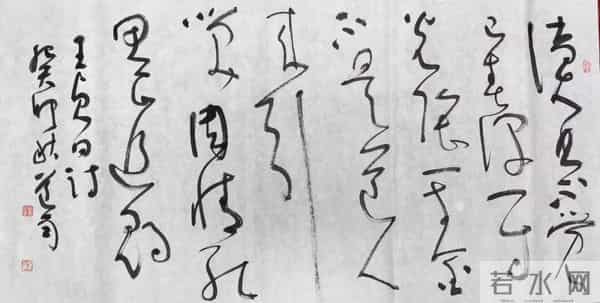 读书不觉
已春深一寸
光阴一寸金
不是道人
来引
笑周情孔
思正追寻
王贞白诗
癸卯秋
若水网